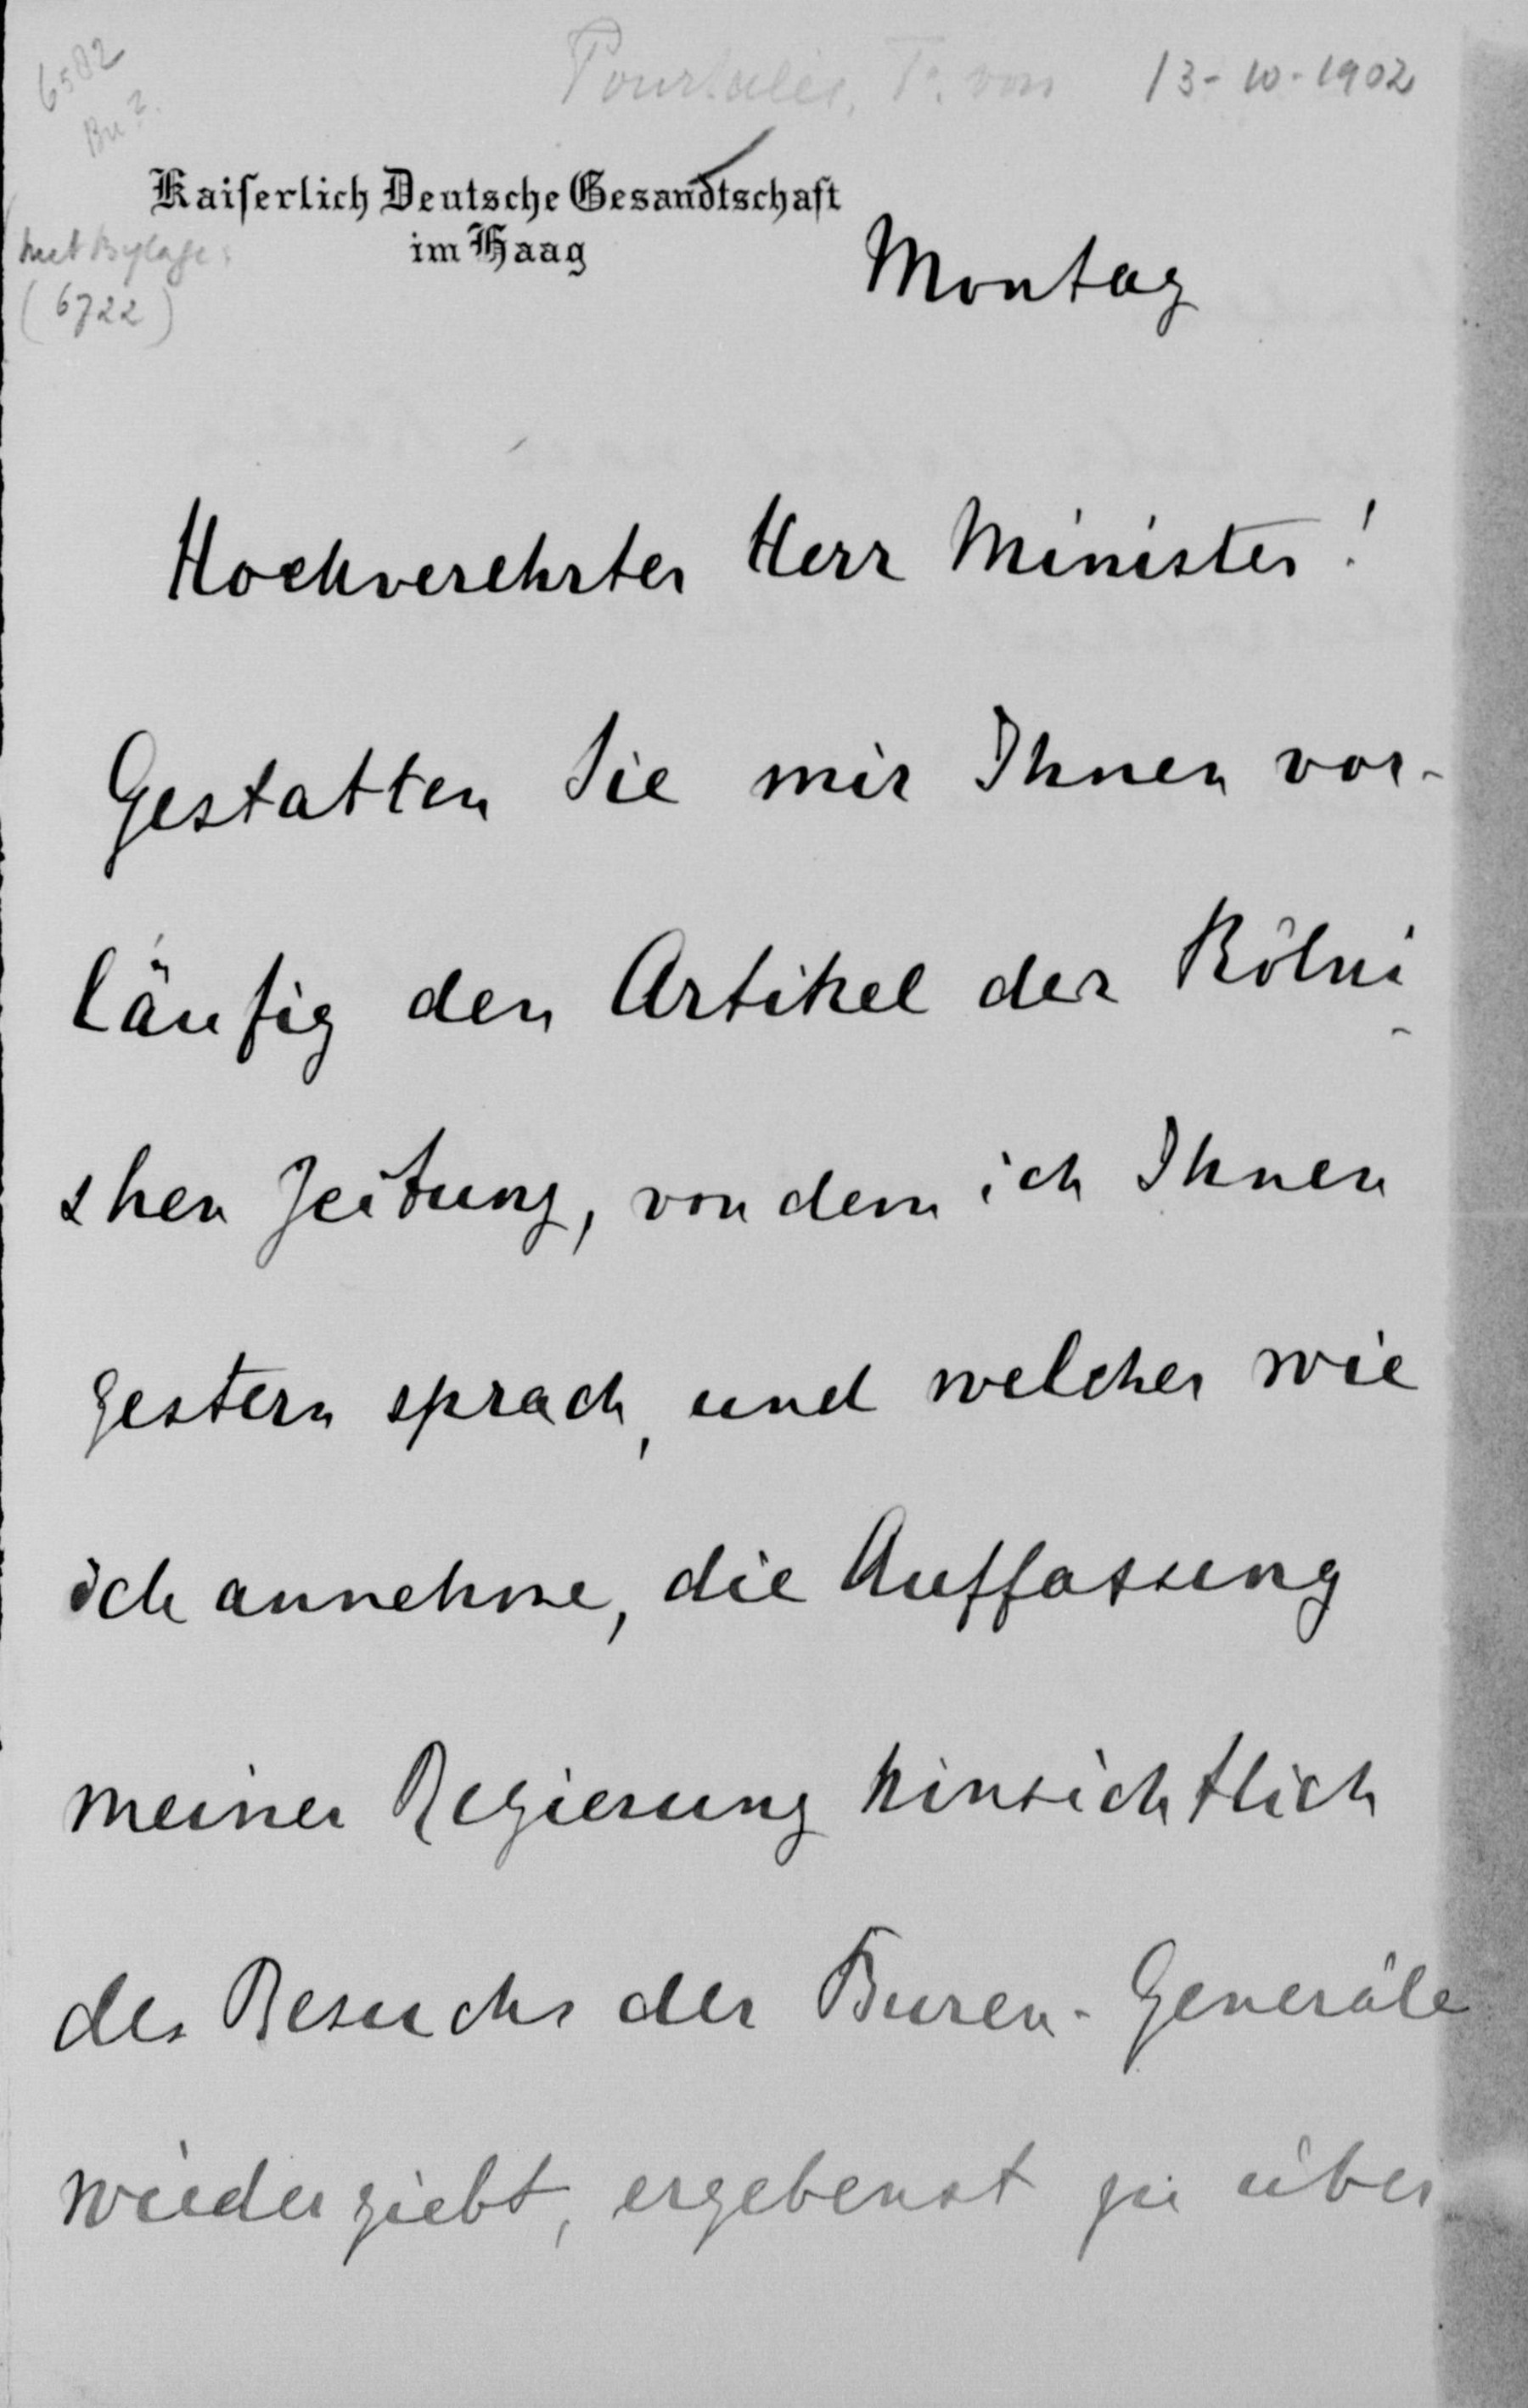 6502
Bu 2.
Pourtalès, F. von 13-10-1902
Kaiserlich Deutsche Gesandtschaft
im Haag
met Bylage:
(6722)
Montag
Hochverehrter Herr Minister!
Gestatten Sie mir Ihnen vor-
läufig den Artikel der Kölni-
schen Zeitung, von dem ich Ihnen
gestern sprach, und welcher wie
ich annehme, die Auffassung
meiner Regierung hinsichtlich
des Besuchs der Buren-Generäle
wiedergiebt, ergebenst zu über